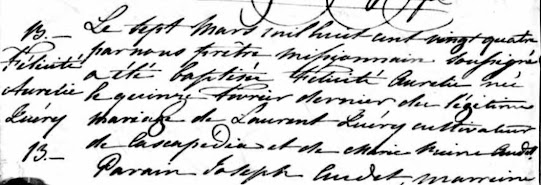 B.—
Félicité
Aurelie
Guéry
13.—
Le sept Mars mil huit cent vingt quatre
par nous prêtre missionnaire soussigné
a été baptisée Félicité Aurelie née
le quinze Fevrier dernier du légitime
mariage de Laurent Guéry cultivateur
de Cascapédia et de Marie Reine Audet
Parain Joseph Audet, marreine